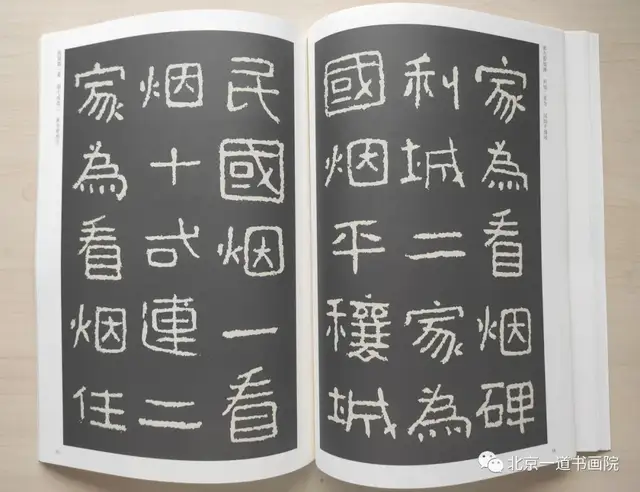 家為看烟碑
利城二家為
國烟平穰城
民國烟一看
烟十連二
家為看烟住
北京一道书画院